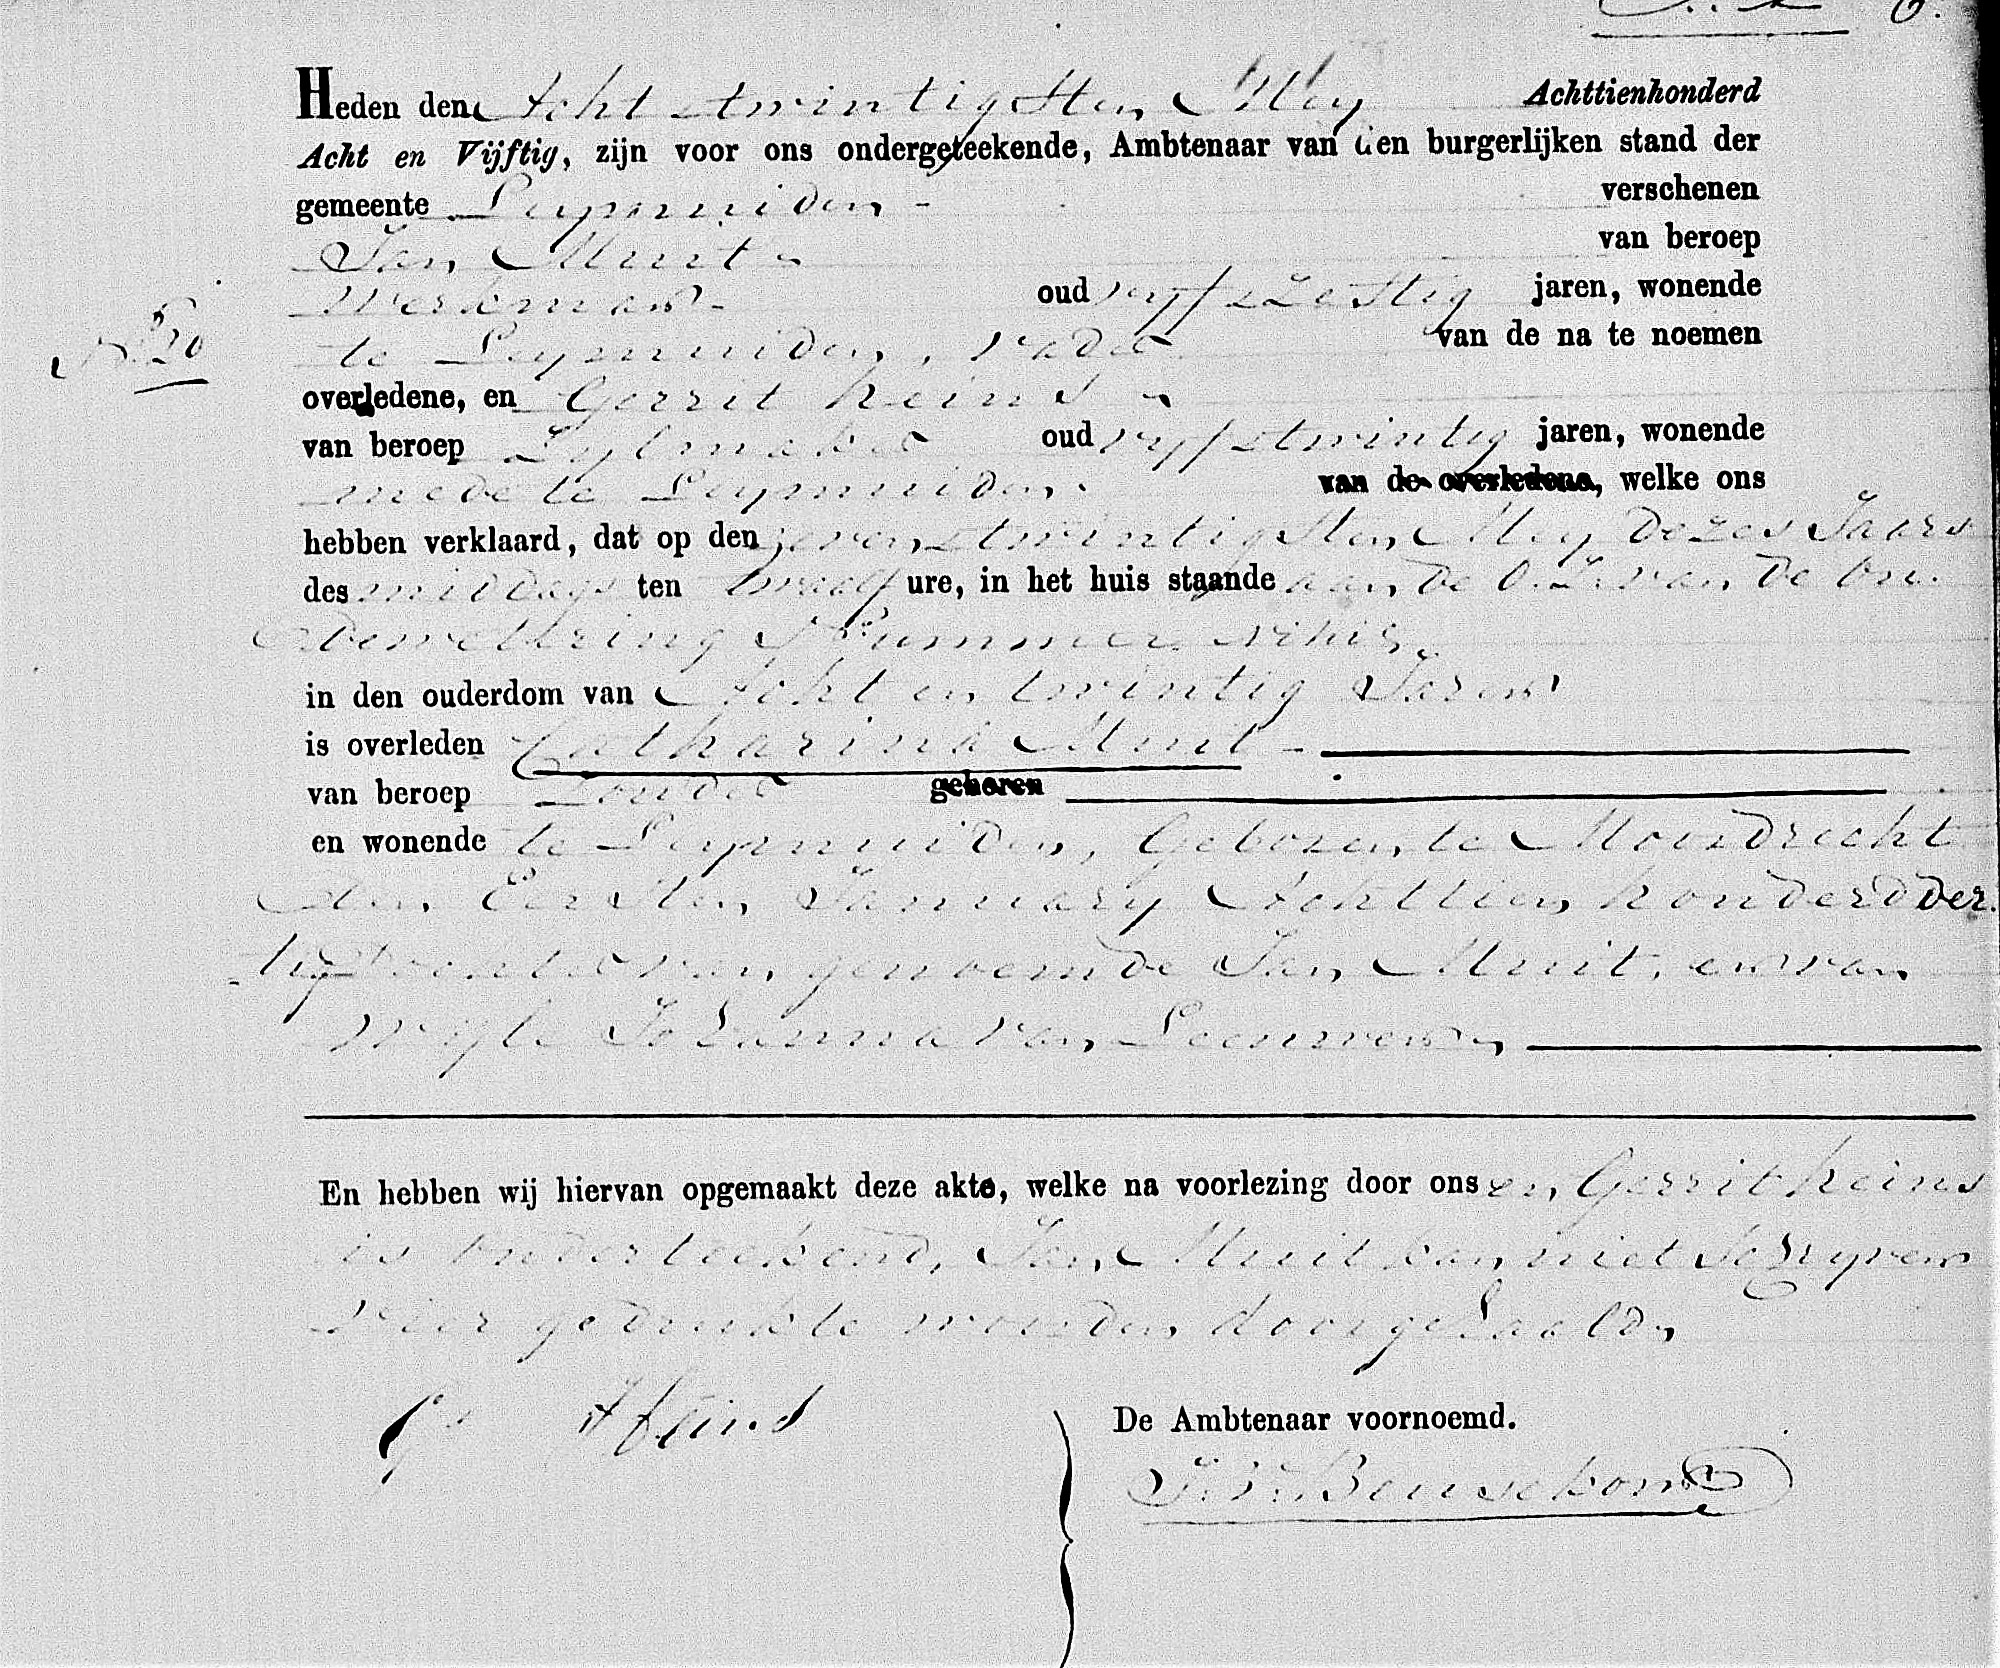 Heden den Acht & twintigsten Mey Achttienhonderd
Acht en Vijftig, zijn voor ons ondergeteekende, Ambtenaar van den burgerlijken stand der
gemeente Leymuiden verschenen
Jan Muit van beroep
Werkman oud vyf & zestig jaren, wonende
N 20
te Leymuiden, vader van de na te noemen
overledene, en Gerrit Heins
van beroep Zylmaker oud vyf & twintig jaren, wonende
mede te Leymuiden van de overledene, welke ons
hebben verklaard, dat op den zeven & twintigsten Mey dezes Jaars
des middags ten twaalf ure, in het huis staande aan de O.Z. van de
Nummer
in den ouderdom van Acht en twintig Jaren
is overleden Catharina Muit
van beroep Zonder geboren
en wonende te Leymuiden, Geboren te Moordrecht
den Eersten January Achttien honderd der
tig Dochter van genoemde Jan Muit, en van
wyle Johanna van Leeuwen
En hebben wij hiervan opgemaakt deze akte, welke na voorlezing door ons en Gerrit Heins
is onderteekend, Jan Muit kan niet Schryven
vier gedrukte woorden doorgehaald.
G Heins
De Ambtenaar voornoemd.
Beusekom